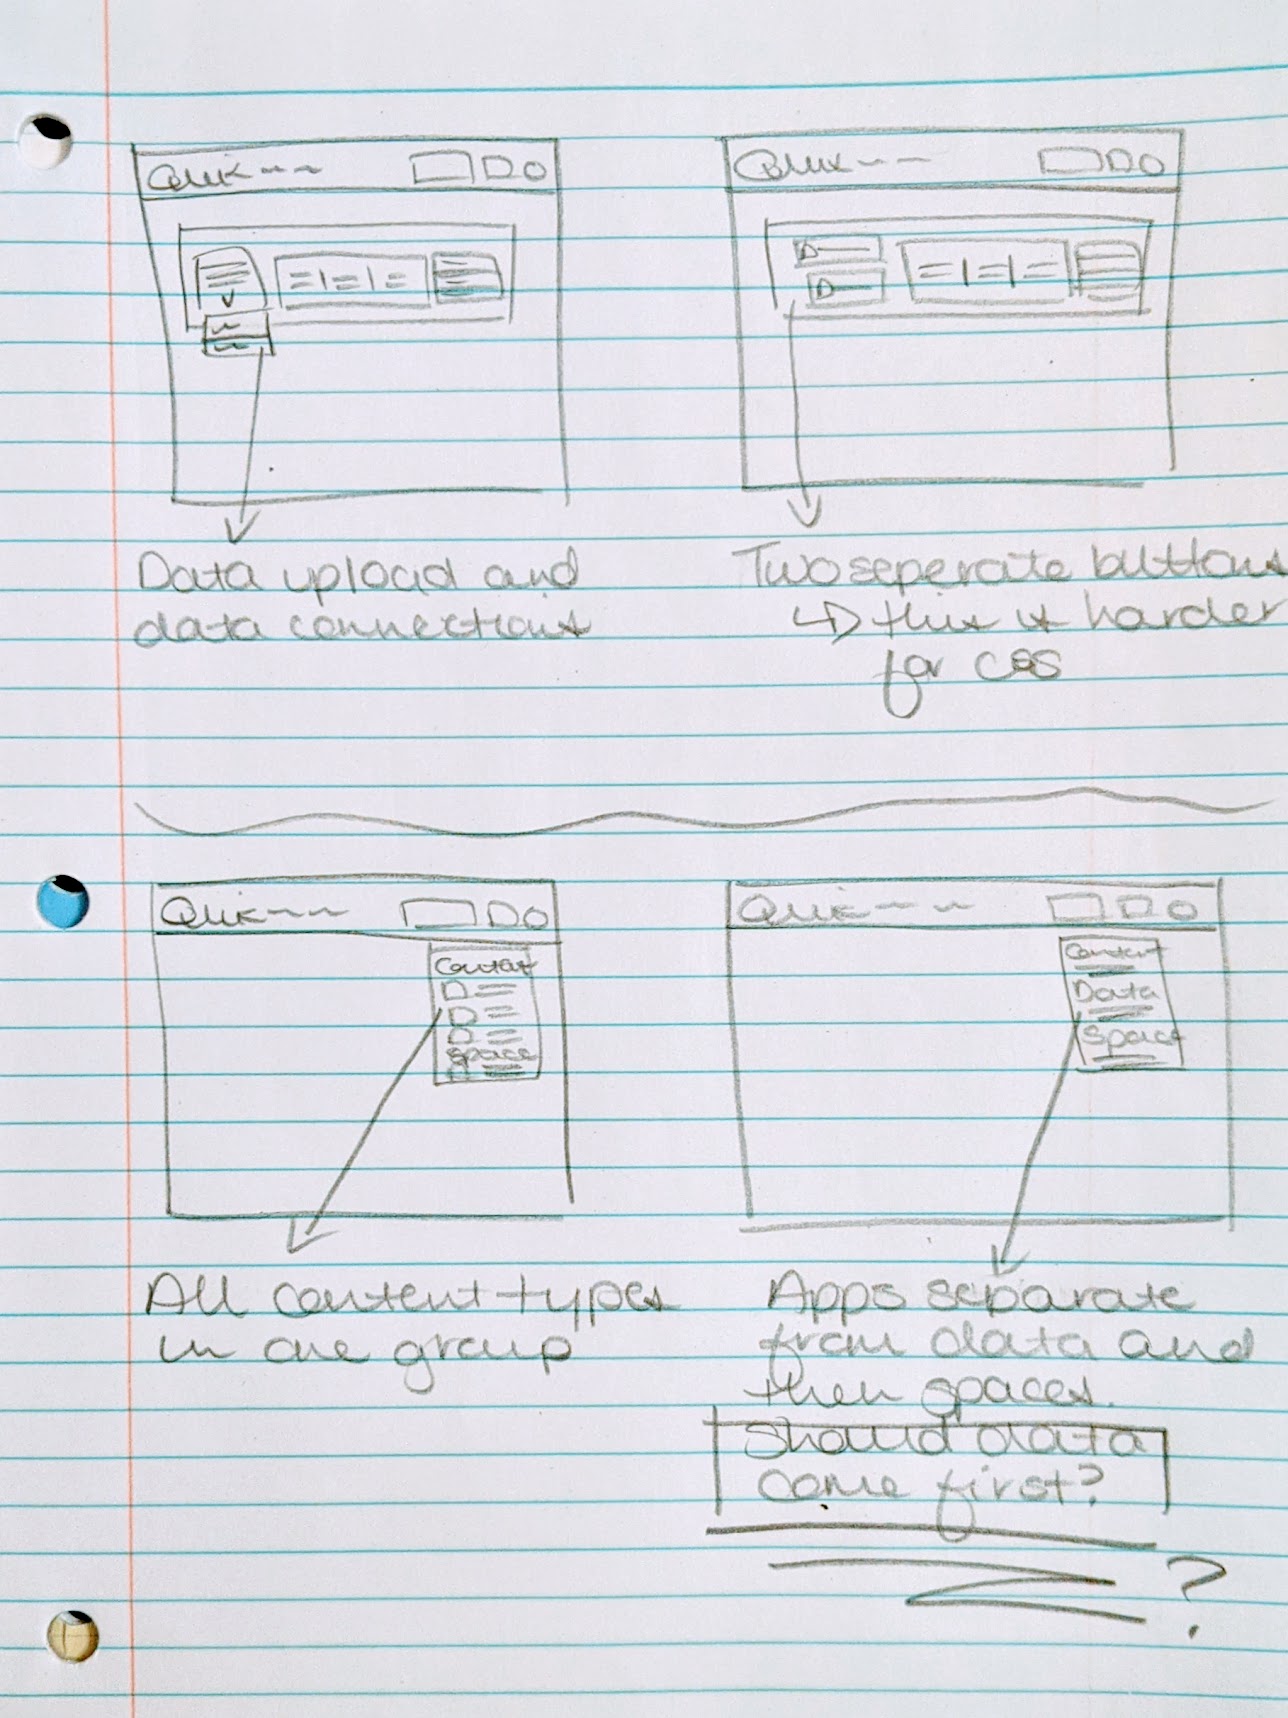 Qlik
Qlik
Data upload and
data connections
Two seperate buttons
↳ this is harder
for css
Qlik
Content
Space
Qlik
Content
Data
Space
All content types
in one group
Apps separate
from data and
then spaces.
Should data
come first?
?